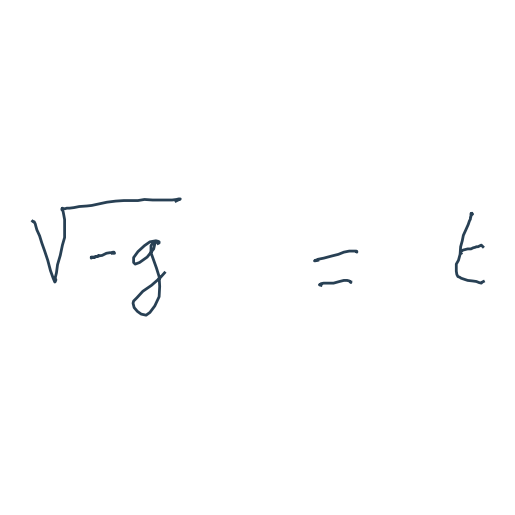 √-g = t